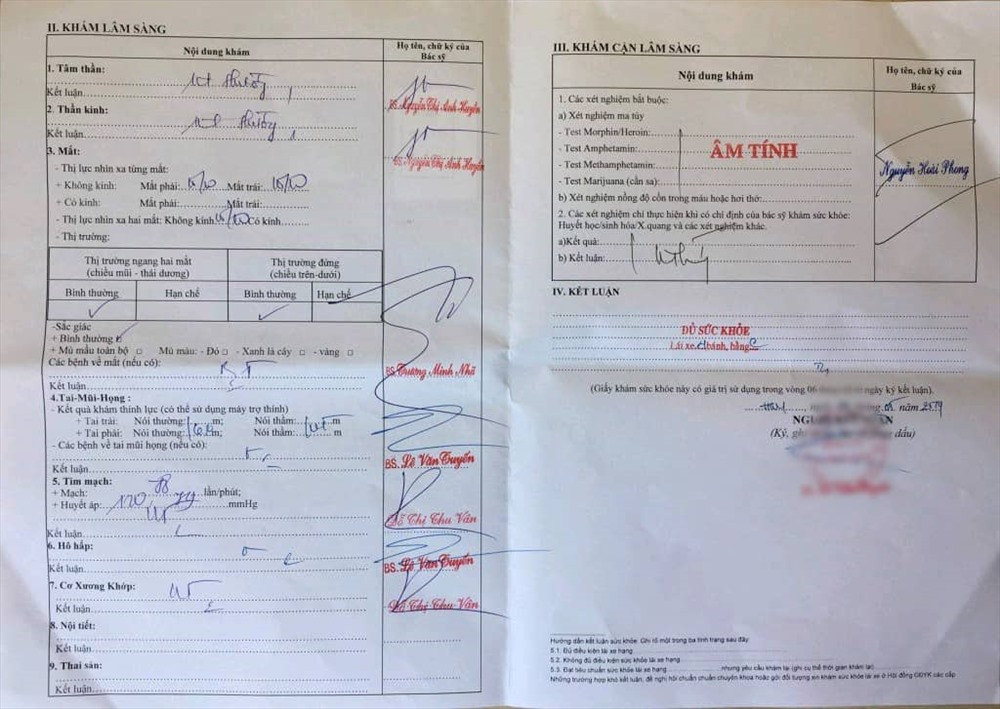 II. KHÁM LÂM SÀNG
Nội dung khám
Họ tên, chữ ký của
Bác sỹ
1. Tâm thần:
Kết luận
BS. Nguyễn Thị Anh Huyền
2. Thần kinh:
Kết luận
BS. Nguyễn Thị Anh Huyền
3. Mắt:
- Thị lực nhìn xa từng mắt:
+ Không kính: Mắt phải: 10/10 Mắt trái: 10/10
+ Có kính: Mắt phải: Mắt trái:
- Thị lực nhìn xa hai mắt: Không kính Có kính
- Thị trường:
Thị trường ngang hai mắt
(chiều mũi - thái dương)
Thị trường đứng
(chiều trên-dưới)
Bình thường
Hạn chế
Bình thường
Hạn chế
-Sắc giác
+ Bình thường
+ Mù mầu toàn bộ □ Mù màu: - Đỏ □ - Xanh lá cây □ - vàng □
Các bệnh về mắt (nếu có):
Kết luận
BS. Trương Minh Nhã
4.Tai-Mũi-Họng :
- Kết quả khám thính lực (có thể sử dụng máy trợ thính)
+ Tai trái: Nói thường: m; Nói thầm: m
+ Tai phải: Nói thường: m; Nói thầm: m
- Các bệnh về tai mũi họng (nếu có):
Kết luận
BS. Lê Văn Tuyến
5. Tim mạch:
+ Mạch: lần/phút;
+ Huyết áp: mmHg
Kết luận
Đỗ Thị Thu Vân
6. Hô hấp:
Kết luận
BS. Lê Văn Tuyến
7. Cơ Xương Khớp:
Kết luận
Đỗ Thị Thu Vân
8. Nội tiết:
Kết luận
9. Thai sản:
Kết luận
III. KHÁM CẬN LÂM SÀNG
Nội dung khám
Họ tên, chữ ký của
Bác sỹ
1. Các xét nghiệm bắt buộc:
a) Xét nghiệm ma túy
- Test Morphin/Heroin:
- Test Amphetamin:
ÂM TÍNH
- Test Methamphetamin:
- Test Marijuana (cần sa):
Nguyễn Hoài Phong
b) Xét nghiệm nồng độ cồn trong máu hoặc hơi thở:
2. Các xét nghiệm chỉ thực hiện khi có chỉ định của bác sỹ khám sức khỏe:
Huyết học/sinh hóa/X.quang và các xét nghiệm khác.
a)Kết quả:
b) Kết luận:
IV. KẾT LUẬN
ĐỦ SỨC KHỎE
Lái xe bánh, bằng
(Giấy khám sức khỏe này có giá trị sử dụng trong vòng 06 ngày ký kết luận).
năm
(Ký, dấu)
Hướng dẫn kết luận sức khỏe: Ghi rõ một trong ba tình trạng sau đây:
5.1. Đủ điều kiện lái xe hạng
5.2. Không đủ điều kiện sức khỏe lái xe hạng
5.3. Đạt tiêu chuẩn sức khỏe lái xe hạng nhưng yêu cầu khám lại (ghi cụ thể thời gian khám lại)
Những trường hợp khó kết luận, đề nghị hội chẩn chuyên khoa hoặc gửi đối tượng xin khám sức khỏe lái xe ở Hội đồng GĐYK các cấp